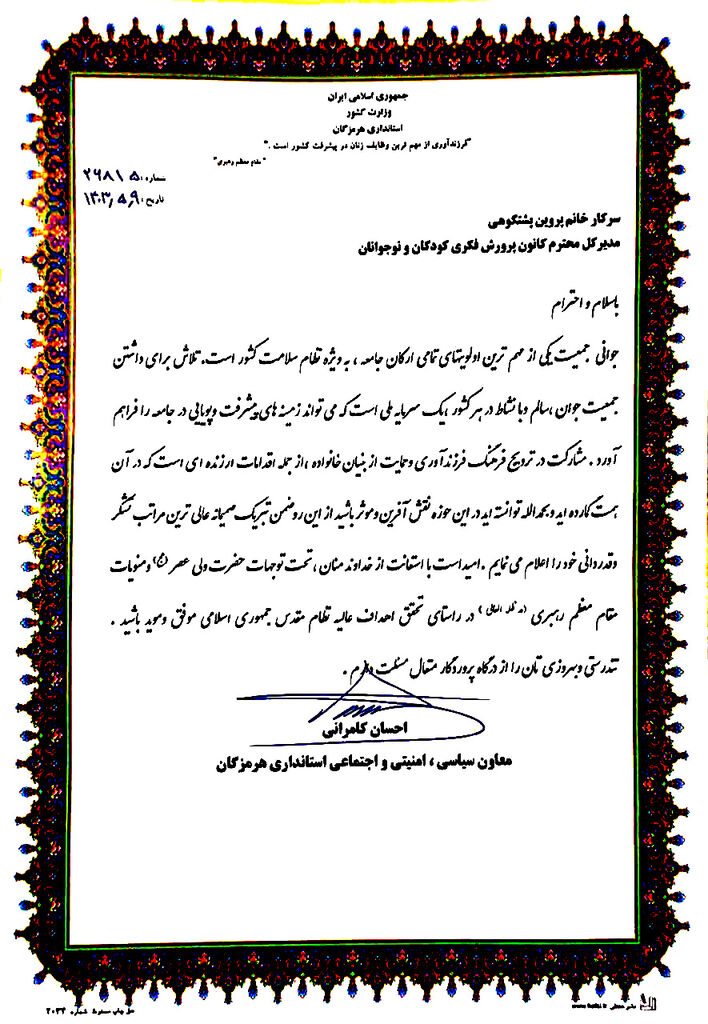 جمهوری اسلامی ایران
وزارت کشور
استانداری هرمزگان
"فرزندآوری از مهم ترین وظایف زنان در پیشرفت کشور است ."
"مقام معظم رهبری"
شماره: ۲۶۸۱۵
تاریخ: ۱۴۰۳,۵,۹
سرکار خانم پروین پشتکوهی
مدیرکل محترم کانون پرورش فکری کودکان و نوجوانان
باسلام و احترام
جوانی جمعیت یکی از مهم ترین اولویتهای تمامی ارکان جامعه ، به ویژه نظام سلامت کشور است. تلاش برای داشتن
جمعیت جوان ،سالم وبا نشاط در هر کشور ،یک سرمایه ملی است که می تواند زمینه های پیشرفت وپویایی در جامعه را فراهم
آورد . مشارکت در ترویج فرهنگ فرزندآوری وحمایت از بنیان خانواده ،از جمله اقدامات ارزنده ای است که در آن
همت گمارده اید وبحمدالله توانسته اید در این حوزه نقش آفرین وموثر باشید از این رو ضمن تبریک صمیمانه عالی ترین مراتب تشکر
وقدردانی خود را اعلام می نمایم . امید است با استعانت از خداوند منان ، تحت توجهات حضرت ولی عصر (عج) ومنویات
مقام معظم رهبری (مد ظله العالی) در راستای تحقق اهداف عالیه نظام مقدس جمهوری اسلامی موفق وموید باشید .
تندرستی وبهروزی تان را از درگاه پروردگار متعال مسئلت دارم .
احسان کامرانی
معاون سیاسی ، امنیتی و اجتماعی استانداری هرمزگان
حق چاپ محفوظ شماره ۲۰۳۴